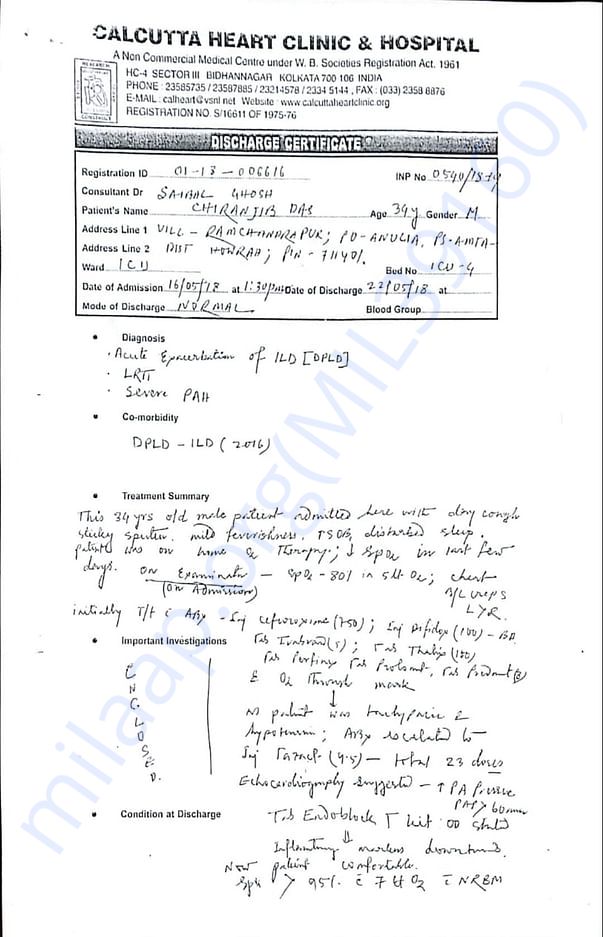 CALCUTTA HEART CLINIC & HOSPITAL
A Non Commercial Medical Centre under W. B. Societies Registration Act. 1961
HC-4 SECTOR III BIDHANNAGAR KOLKATA 700 106 INDIA
PHONE : 23585735 / 23587885 / 23214578 / 2334 5144 , FAX : (033) 2358 8876
E-MAIL calheart@vsnl net Website www.calcuttaheartclinic.org
REGISTRATION NO. S/16611 OF 1975-76
DISCHARGE CERTIFICATE
Registration ID 01-18-006616 INP No
Consultant Dr SAIBAL GHOSH
Patient's Name CHIRANJIB DAS Age 34y Gender M
Address Line 1 VILL - RAMCHANDRAPUR; PO-ANULIA, PS-AMTA-
Address Line 2 DIST HOWRAH; PIN - 711401.
Ward ICU Bed No ICU-4
Date of Admission 16/05/18 at 1:30pm Date of Discharge 22/05/18 at
Mode of Discharge NORMAL Blood Group
• Diagnosis
· Acute Exacerbation of ILD [DPLD]
· LRTI
· Severe PAH
• Co-morbidity
DPLD - ILD (2016)
• Treatment Summary
This 34 yrs old male patient admitted here with dry cough
sticky sputum, mild feverishness, SOB, disturbed sleep.
patient was on home O2 Therapy; ↓ SpO2 in last few
days. On Examination - SpO2 - 80% in 5 lit O2; chest
(On Admission) B/L creps
initially T/t c ABx - Inj Cefuroxime (750);
• Important Investigations
ENCLOSED.
& O2 through mask
↓
As patient was tachypneic &
hypotension; ABx escalated to
Inj (4.5) - total 23 doses
Echocardiography suggested - ↑ PA Pressure
• Condition at Discharge
Tab Endoblock
↓
Inflammatory markers downtrend.
Now patient comfortable.
> 95% c 7 lit O2 c NRBM
milaap.org(MIL39160)